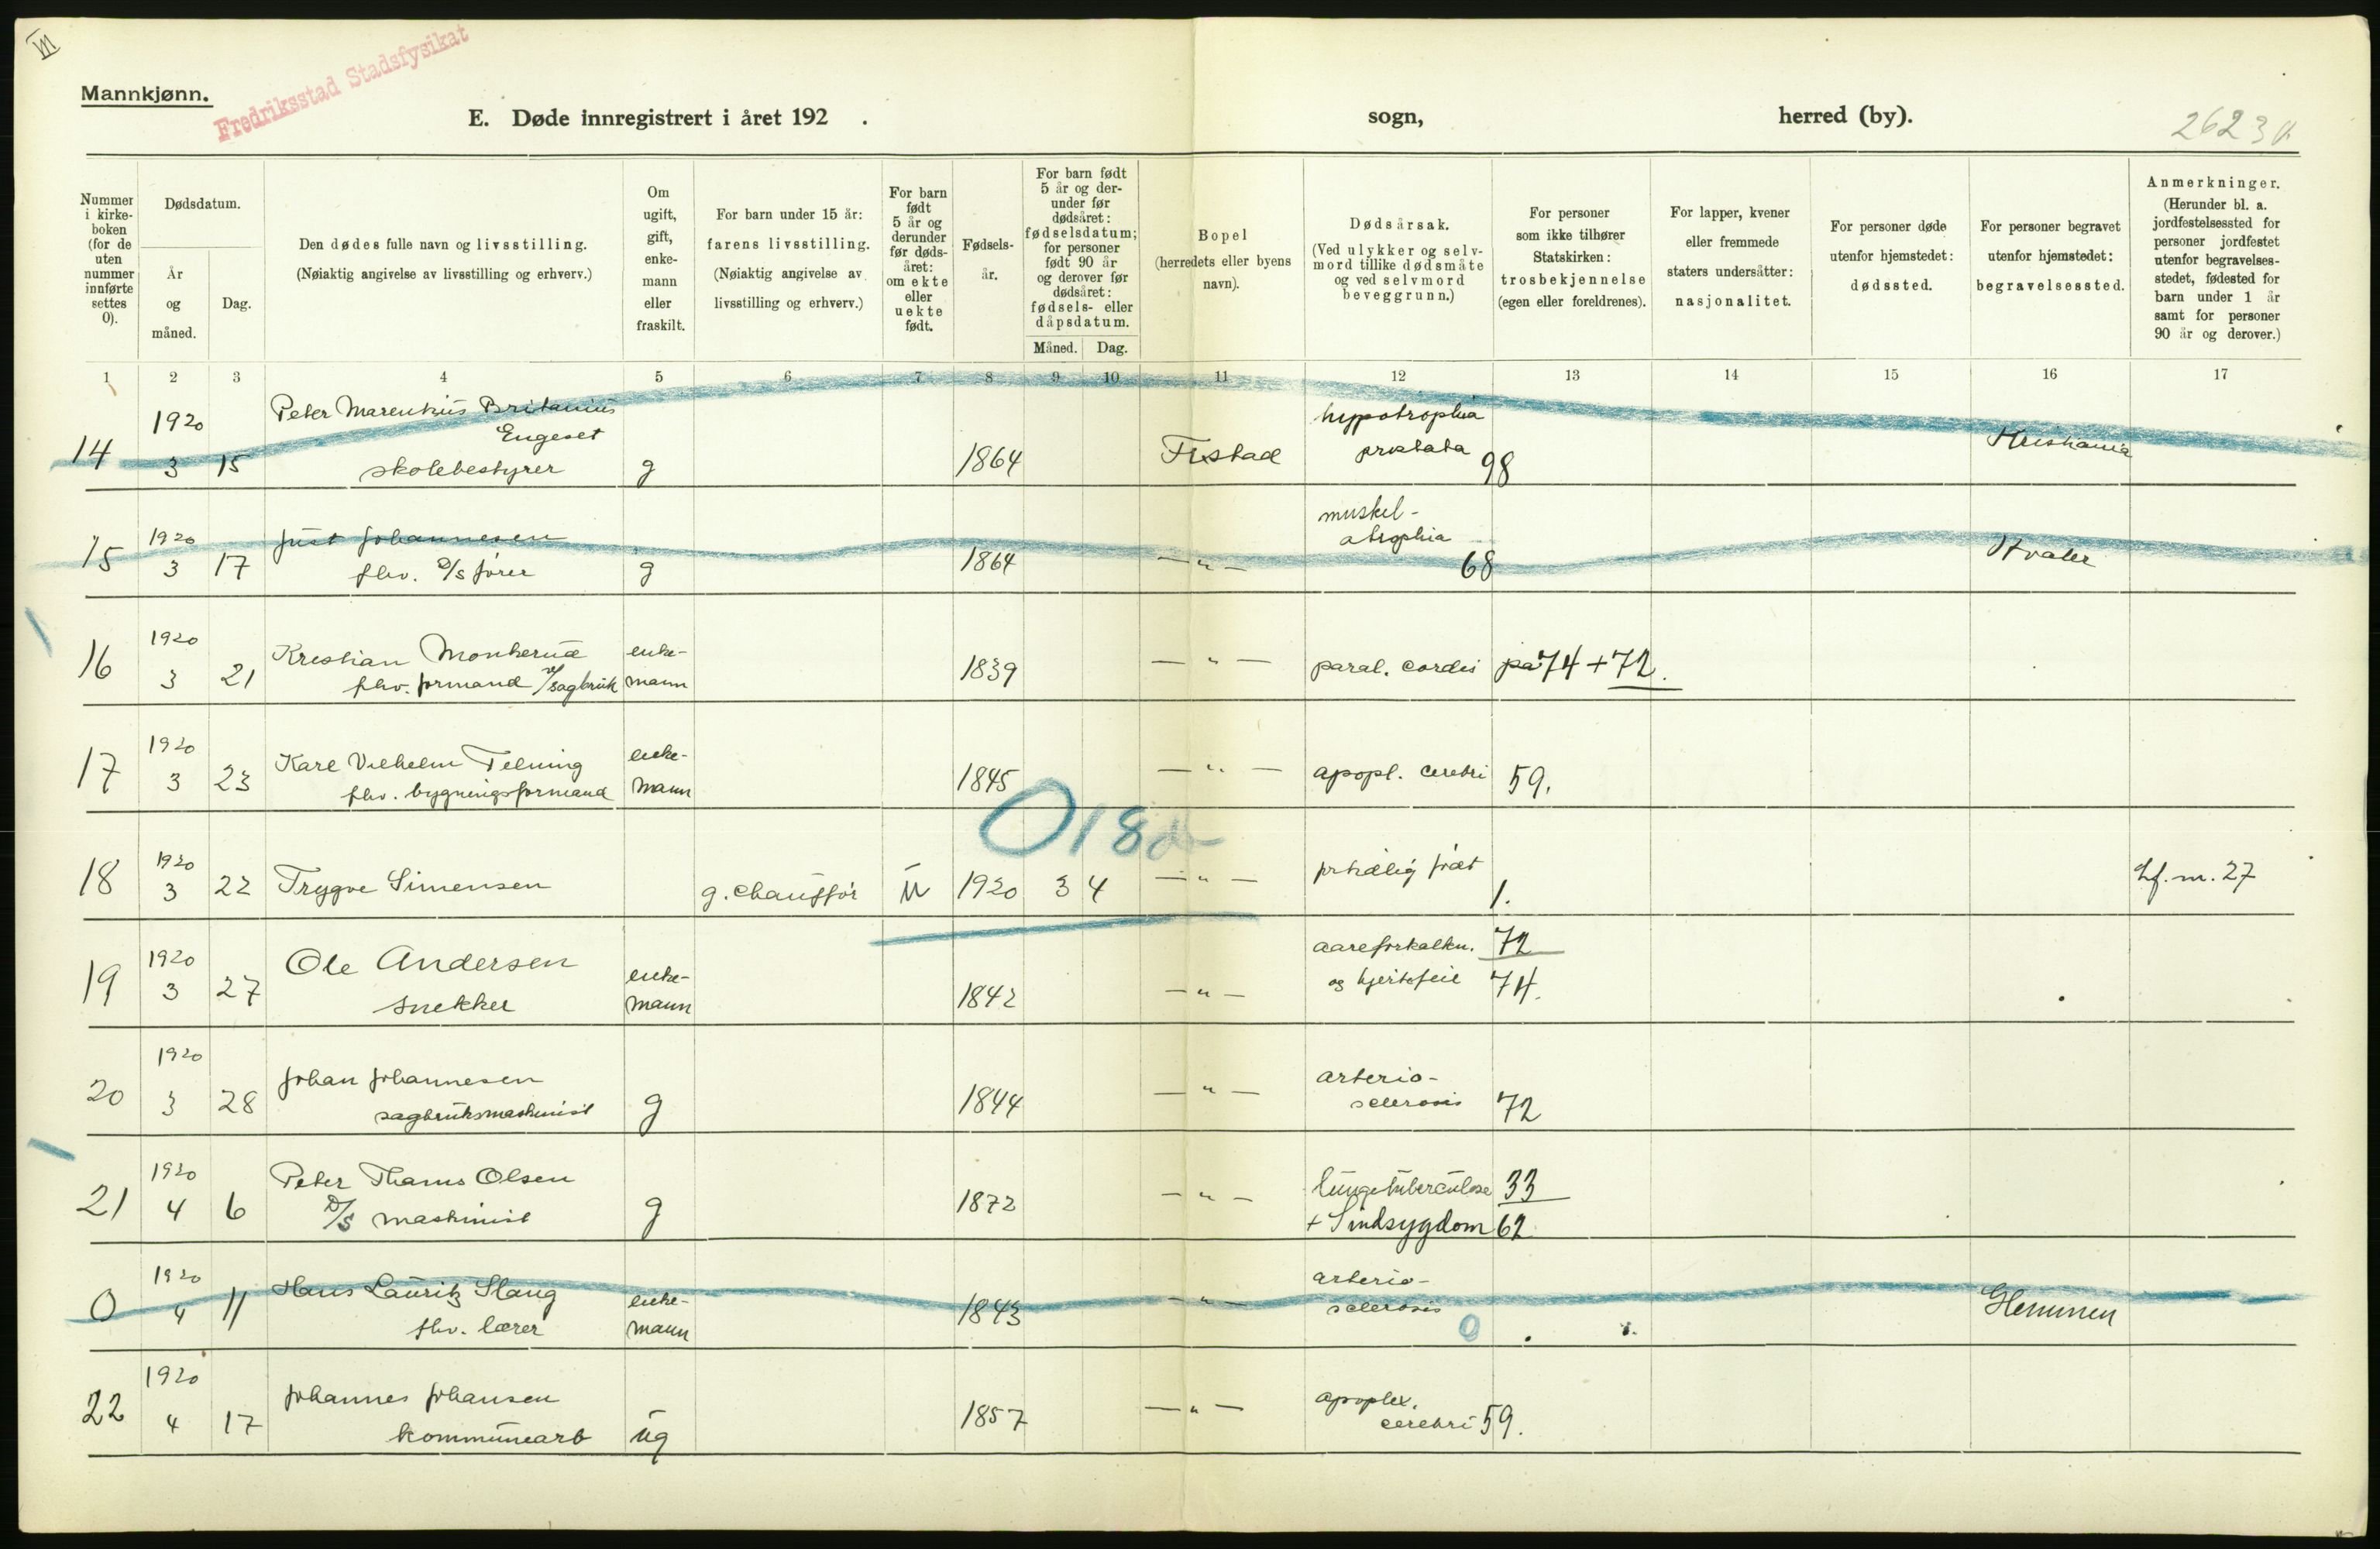 VII
Mannkjønn.
Fredriksstad Stadsfysikat
E. Døde innregistrert i året 192 .
sogn,
herred (by).
2623
Nummer i kirke- boken (for de uten nummer innførte settes 0).
Dødsdatum.
År og måned.
Dag.
Den dødes fulle navn og livsstilling.
(Nøiaktig angivelse av livsstilling og erhverv.)
Om ugift, gift, enke- mann eller fraskilt.
For barn under 15 år:
farens livsstilling.
(Nøiaktig angivelse av livsstilling og erhverv.)
For barn født 5 år og derunder før døds- året: om ekte eller uekte født.
Fødsels- år.
For barn født 5 år og der- under før dødsåret: fødselsdatum; for personer født 90 år og derover før dødsåret: fødsels- eller dåpsdatum.
Måned. Dag.
Bopel
(herredets eller byens navn).
Dødsårsak.
(Ved ulykker og selv- mord tillike dødsmåte og ved selvmord beveggrunn.)
For personer som ikke tilhører Statskirken: trosbekjennelse (egen eller foreldrenes).
For lapper, kvener eller fremmede staters undersåtter: nasjonalitet.
For personer døde utenfor hjemstedet: dødssted.
For personer begravet utenfor hjemstedet: begravelsessted.
Anmerkninger.
(Herunder bl. a. jordfestelsessted for personer jordfestet utenfor begravelses- stedet, fødested for barn under 1 år samt for personer 90 år og derover.)
1 2 3 4 5 6 7 8 9 10 11 12 13 14 15 16 17
1920 Peter Marenkus Britanius hypotrophia
Engeset
14 3 15 skolebestyrer g 1864 Frstad prostata 98 Kristiania
1920 Just Johannesen muskel-
atrophia
15 3 17 fhv. D/S fører g 1864 — " — 68 Hvaler
1920 Kristian Monkerud enke-
16 3 21 fhv. formand v/sagbruk mann 1839 — " — paral. cordis på 74 + 72.
1920 Karl Vilhelm Telning enke-
17 3 23 fhv. bygningsformand mann 1845 — " — apopl. cerebri 59.
018d
1920
18 3 22 Trygve Simensen g. chauffør u 1920 3 4 — " — fortidlig født 1. Lf. nr. 27
1920 Ole Andersen enke- aareforkalkn. 72
19 3 27 snekker mann 1842 — " — og hjertefeil 74.
1920 Johan Johannesen arterio-
20 3 28 sagbruksmaskinist g 1844 — " — sclerosis 72
1920 Peter Thams Olsen lungetuberculose 33
21 4 6 D/S maskinist g 1872 — " — + Sindsygdom 62
1920 Hans Lauritz Slang enke- arterio-
0 4 11 fhv. lærer mann 1843 — " — sclerosis 0 Glemmen
1920 Johannes Johansen apoplex.
22 4 17 kommunearb ug 1857 — " — cerebri 59.